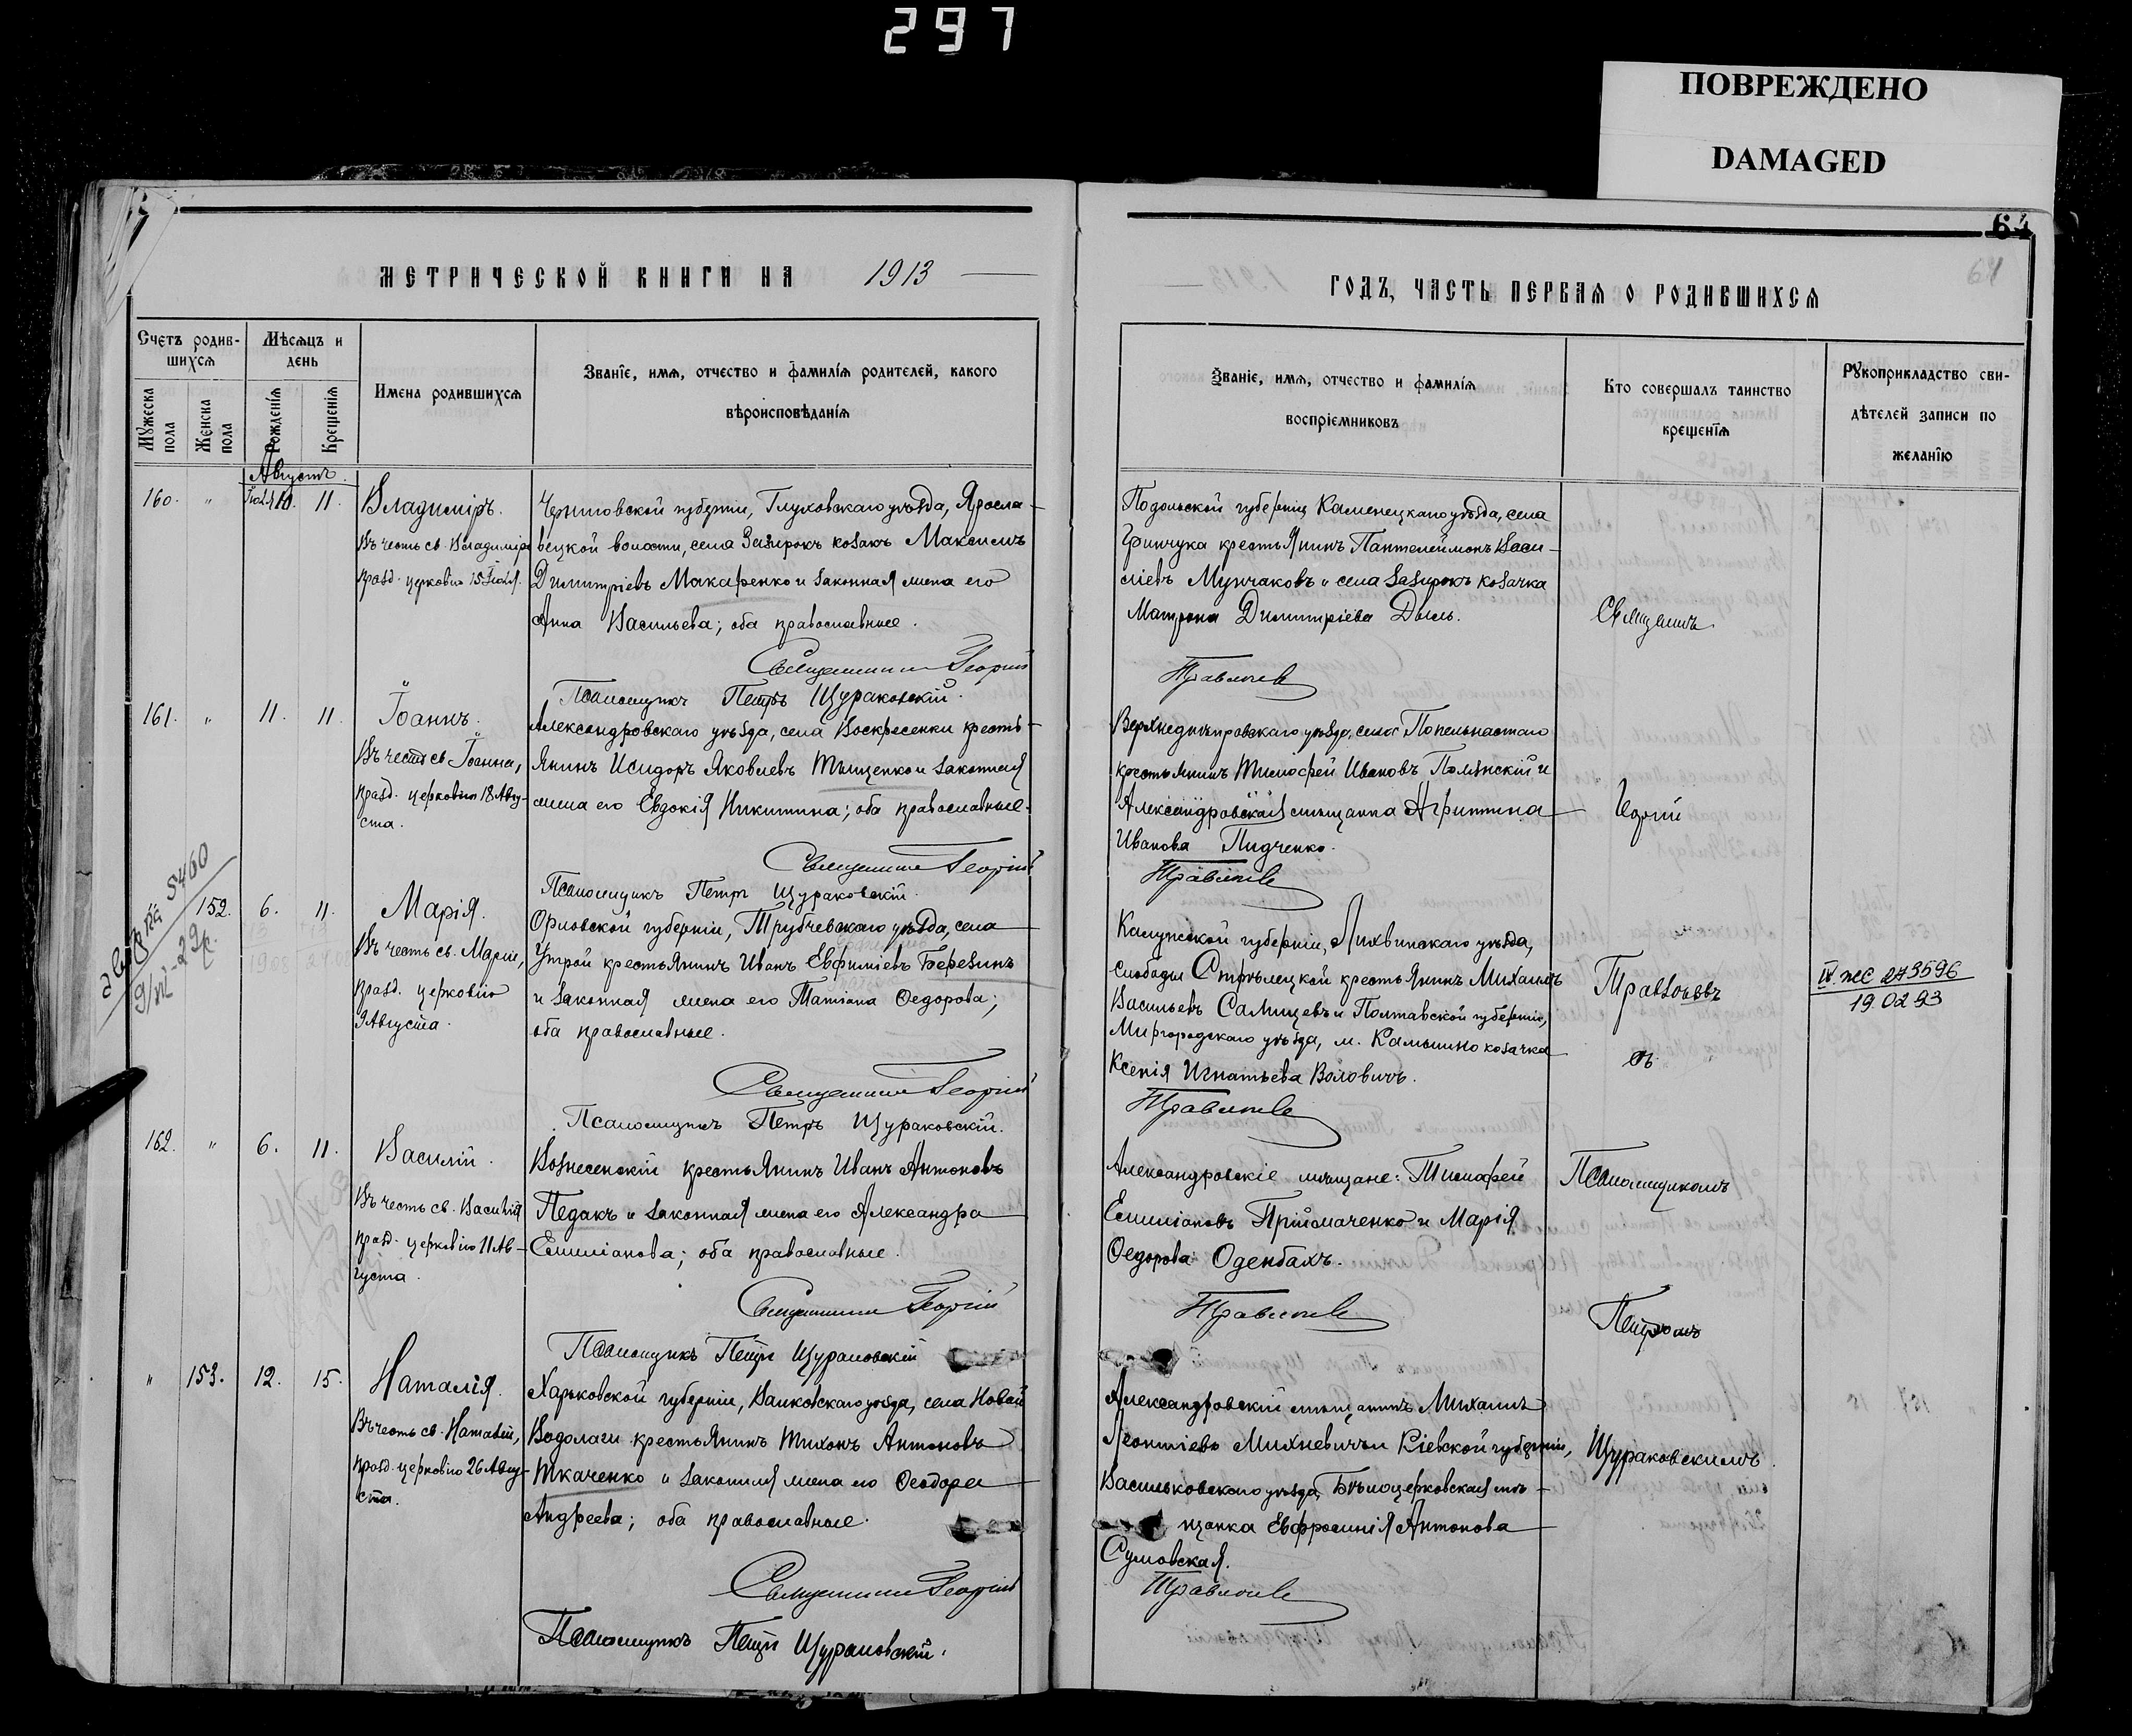 297
ПОВРЕЖДЕНО
DAMAGED
64
64
МЕТРИЧЕСКОЙ КНИГИ НА 1913
ГОДЪ, ЧАСТЬ ПЕРВАЯ О РОДИВШИХСЯ
Счетъ родив-
шихся
Мужеска пола
Женска пола
Мѣсяцъ и
день
Рожденія
Крещенія
Имена родившихся
Званіе, имя, отчество и фамилія родителей, какого
вѣроисповѣданія
Званіе, имя, отчество и фамилія
воспріемниковъ
Кто совершалъ таинство
крещенія
Рукоприкладство сви-
дѣтелей записи по
желанію
Августъ
160. " 10. 11.
Владиміръ.
Въ честь св. Владиміра
празд. церковію 15 Іюля.
Черниговской губерніи, Глуховскаго уѣзда, Яросла-
вецкой волости, села Зазирокъ козакъ Максимъ
Димитріевъ Макаренко и законная жена его
Анна Васильева; оба православные.
Священникъ Георгій
Псаломщикъ Петръ Щураковскій.
Подольской губерніи, Каменецкаго уѣзда, села
Гринчука крестьянинъ Пантелеймонъ Васи-
ліевъ Мунчаковъ и села Зазирокъ козачка
Матрона Димитріева Дыль.
Травлонвъ
Священникъ
161. " 11. 11.
Іоаннъ.
Въ честь св. Іоанна,
празд. церковію 18 Авгу-
ста.
Александровскаго уѣзда, села Воскресенки кресть-
янинъ Исидоръ Яковлевъ Тыщенко и законная
жена его Евдокія Никитина; оба православные.
Священникъ Георгій
Псаломщикъ Петръ Щураковскій.
Верхнеднѣпровскаго уѣзда, села Попельнастаго
крестьянинъ Тимофей Ивановъ Полянскій и
Александровская мѣщанка Агриппина
Иванова Пидченко.
Георгій
5460
9/VI-29г.
152. 6. 11.
Марія.
Въ честь св. Маріи,
празд. церковію
9 Августа.
Орловской губерніи, Трубчевскаго уѣзда, села
Утрой крестьянинъ Иванъ Евфиміевъ Березинъ
и законная жена его Татіана Ѳедорова;
оба православные.
Священникъ Георгій
Псаломщикъ Петръ Щураковскій.
Калужской губерніи, Лихвинскаго уѣзда,
слободы Стрѣлецкой крестьянинъ Михаилъ
Васильевъ Салищевъ и Полтавской губерніи,
Миргородскаго уѣзда, м. Камышино козачка
Ксенія Игнатьева Воловичъ.
съ
IV ЖС 273596
19 02 93
162. " 6. 11.
Василій.
Въ честь св. Василія
празд. церковію 11 Ав-
густа.
Вознесенскій крестьянинъ Иванъ Антоновъ
Педакъ и законная жена его Александра
Емиліанова; оба православные.
Священникъ Георгій
Псаломщикъ Петръ Щураковскій
Александровскіе мѣщане: Тимофей
Емиліановъ Пріймаченко и Марія
Ѳедорова Оденбахъ.
Псаломщикомъ
Петромъ
" 153. 12. 15.
Наталія.
Въ честь св. Наталіи,
празд. церковію 26 Авгу-
ста.
Харьковской губерніи, Валковскаго уѣзда, села Новой
Водолаги крестьянинъ Тихонъ Антоновъ
Ткаченко и законная жена его Ѳеодора
Андреева; оба православные.
Священникъ Георгій
Псаломщикъ Петръ Щураковскій.
Александровскій мѣщанинъ Михаилъ
Леонтіевъ Михневичъ и Кіевской губерніи,
Васильковскаго уѣзда, Бѣлоцерковская мѣ-
щанка Евфросинія Антонова
Сумовская.
Щураковскимъ.